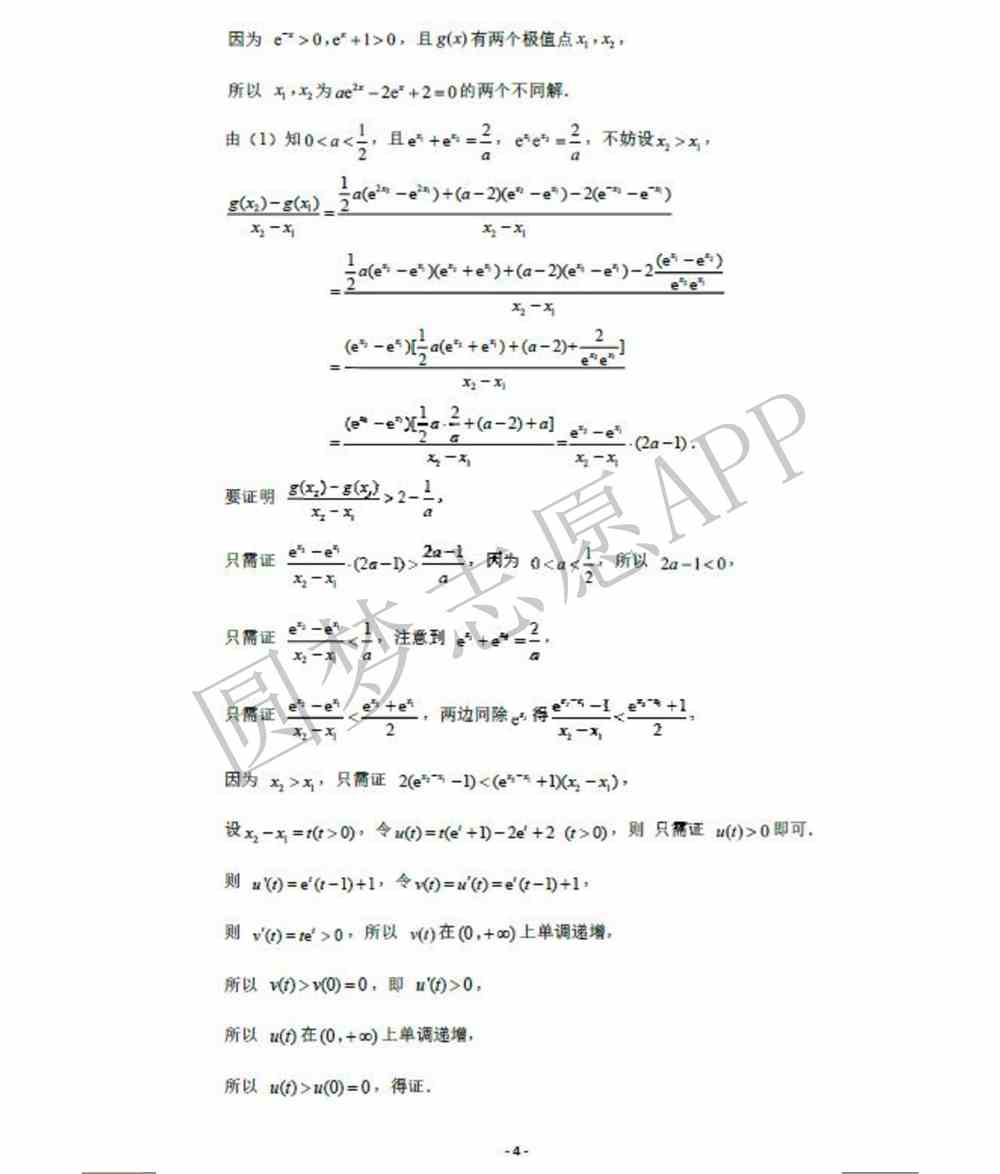 因为 e⁻ˣ>0,eˣ+1>0，且g(x)有两个极值点x₁,x₂，
所以 x₁,x₂为ae²ˣ−2eˣ+2=0的两个不同解.
由（1）知0<a<1/2，且e^{x₁}+e^{x₂}=2/a，e^{x₁}e^{x₂}=2/a，不妨设x₂>x₁，
(g(x₂)−g(x₁))/(x₂−x₁)=(1/2 a(e^{2x₂}−e^{2x₁})+(a−2)(e^{x₂}−e^{x₁})−2(e^{−x₂}−e^{−x₁}))/(x₂−x₁)
=(1/2 a(e^{x₂}−e^{x₁})(e^{x₂}+e^{x₁})+(a−2)(e^{x₂}−e^{x₁})−2(e^{x₁}−e^{x₂})/(e^{x₂}e^{x₁}))/(x₂−x₁)
=((e^{x₂}−e^{x₁})[1/2 a(e^{x₂}+e^{x₁})+(a−2)+2/(e^{x₂}e^{x₁})])/(x₂−x₁)
=((e^{x₂}−e^{x₁})[1/2 a·2/a+(a−2)+a])/(x₂−x₁)=(e^{x₂}−e^{x₁})/(x₂−x₁)·(2a−1).
要证明 (g(x₂)−g(x₁))/(x₂−x₁)>2−1/a，
只需证 (e^{x₂}−e^{x₁})/(x₂−x₁)·(2a−1)>(2a−1)/a，因为 0<a<1/2，所以 2a−1<0，
只需证 (e^{x₂}−e^{x₁})/(x₂−x₁)<1/a，注意到 e^{x₁}+e^{x₂}=2/a，
只需证 (e^{x₂}−e^{x₁})/(x₂−x₁)<(e^{x₂}+e^{x₁})/2，两边同除e^{x₁}得(e^{x₂−x₁}−1)/(x₂−x₁)<(e^{x₂−x₁}+1)/2，
因为 x₂>x₁，只需证 2(e^{x₂−x₁}−1)<(e^{x₂−x₁}+1)(x₂−x₁)，
设x₂−x₁=t(t>0)，令u(t)=t(eᵗ+1)−2eᵗ+2 (t>0)，则 只需证 u(t)>0即可.
则 u'(t)=eᵗ(t−1)+1，令v(t)=u'(t)=eᵗ(t−1)+1，
则 v'(t)=teᵗ>0，所以 v(t)在(0,+∞)上单调递增，
所以 v(t)>v(0)=0，即 u'(t)>0，
所以 u(t)在(0,+∞)上单调递增，
所以 u(t)>u(0)=0，得证.
圆梦志愿APP
-4-